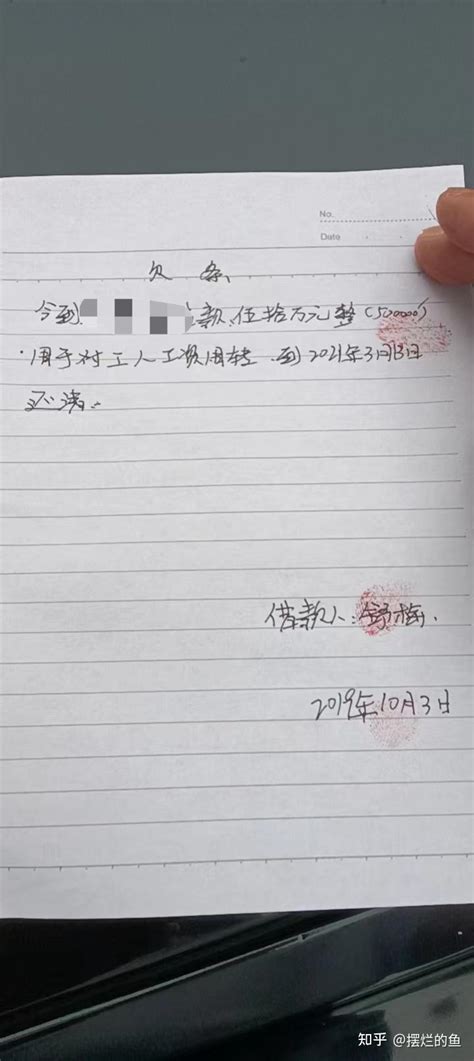 No.
Date
欠条
今到 款伍拾万元整(500000)
用于对工人工资周转.到2021年3月13日
还清.
借款人:舒梅.
2019年10月3日
知乎 @摆烂的鱼